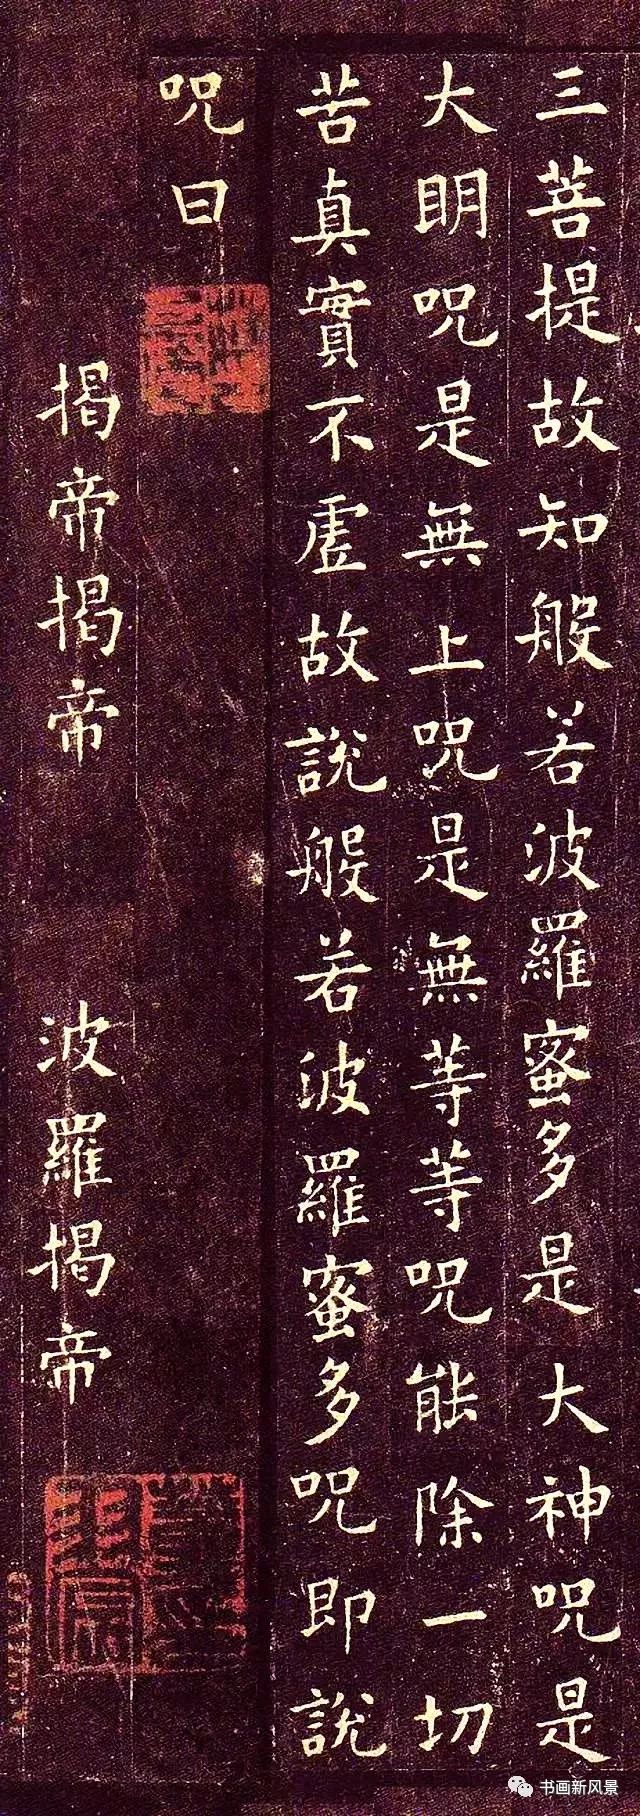 三菩提故知般若波羅蜜多是大神呪是
大明呪是無上呪是無等等呪能除一切
苦真實不虛故說般若波羅蜜多呪即說
呪曰
揭帝揭帝 波羅揭帝
书画新风景